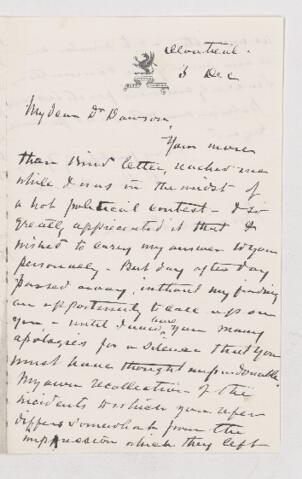 Montreal.
3 Dec
My dear Dr Dawson,
Your more
than kind letter, reached me
while I was in the midst of
a hot political contest - I so
greatly appreciated it that I
wished to carry my answer to you
personally - But day after day
passed away, without my finding
an opportunity to call upon
you, - until I owe you many
apologies for a silence that you
must have thought unpardonable
My own recollection of the
incidents to which you refer
differs somewhat from the
impression which they left